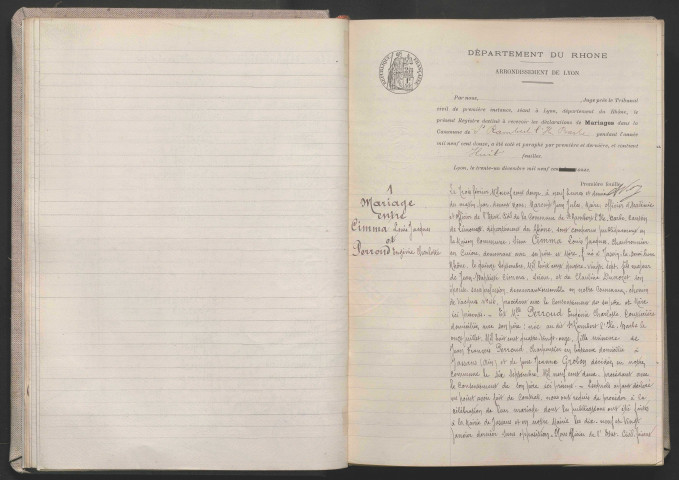 DÉPARTEMENT DU RHONE
ARRONDISSEMENT DE LYON
Par nous, Juge près le Tribunal
civil de première instance, séant à Lyon, département du Rhône, le
présent Registre destiné à recevoir les déclarations de Mariages dans la
Commune de St Rambert l'Ile Barbe pendant l'année
mil neuf cent douze, a été coté et paraphé par première et dernière, et contient
Huit feuilles.
Lyon, le trente-un décembre mil neuf cent onze.
Première feuille
1
Mariage
entre
Cimma Louis Jacques
et
Perroud Eugénie Charlotte
Le Trois février, Mil neuf cent douze, à neuf heures et demie
du matin, par devant nous, Jules, Maire, officier d'Académie
et officier de l'Etat Civil de la Commune de St Rambert l'Ile Barbe, Canton
de Limonest, département du Rhône, ont comparu publiquement en
la Maison Commune, Sieur Cimma Louis Jacques, Chaudronnier
en Cuivre, demeurant avec ses père et Mère, né à
Rhône, le quinze Septembre, Mil huit cent quatre-vingt-sept, fils majeur
de Jean-Baptiste Cimma, et de Claudine
profession, demeurant ensemble en notre Commune, chemin
procédant avec le Consentement de ses père et Mère
ici présents. – Et Mlle Perroud Eugénie Charlotte, Couturière
domiciliée avec son père, née au dit St Rambert l'Ile Barbe le
onze juillet, Mil huit cent quatre-vingt-onze, fille mineure de
Jean François Perroud Charpentier domicilié à
Jassans (Ain), et de Jeanne décédée en notre
Commune le six Septembre, Mil neuf cent deux, procédant avec
le Consentement de son père ici présent. – Lesquels ayant déclaré
ne point avoir fait de Contrat, nous ont requis de procéder à la
célébration de leur mariage dont les publications ont été faites
à la Mairie de Jassans et en notre Mairie les dix-neuf et vingt
janvier dernier sans opposition. Nous officier de l'Etat Civil